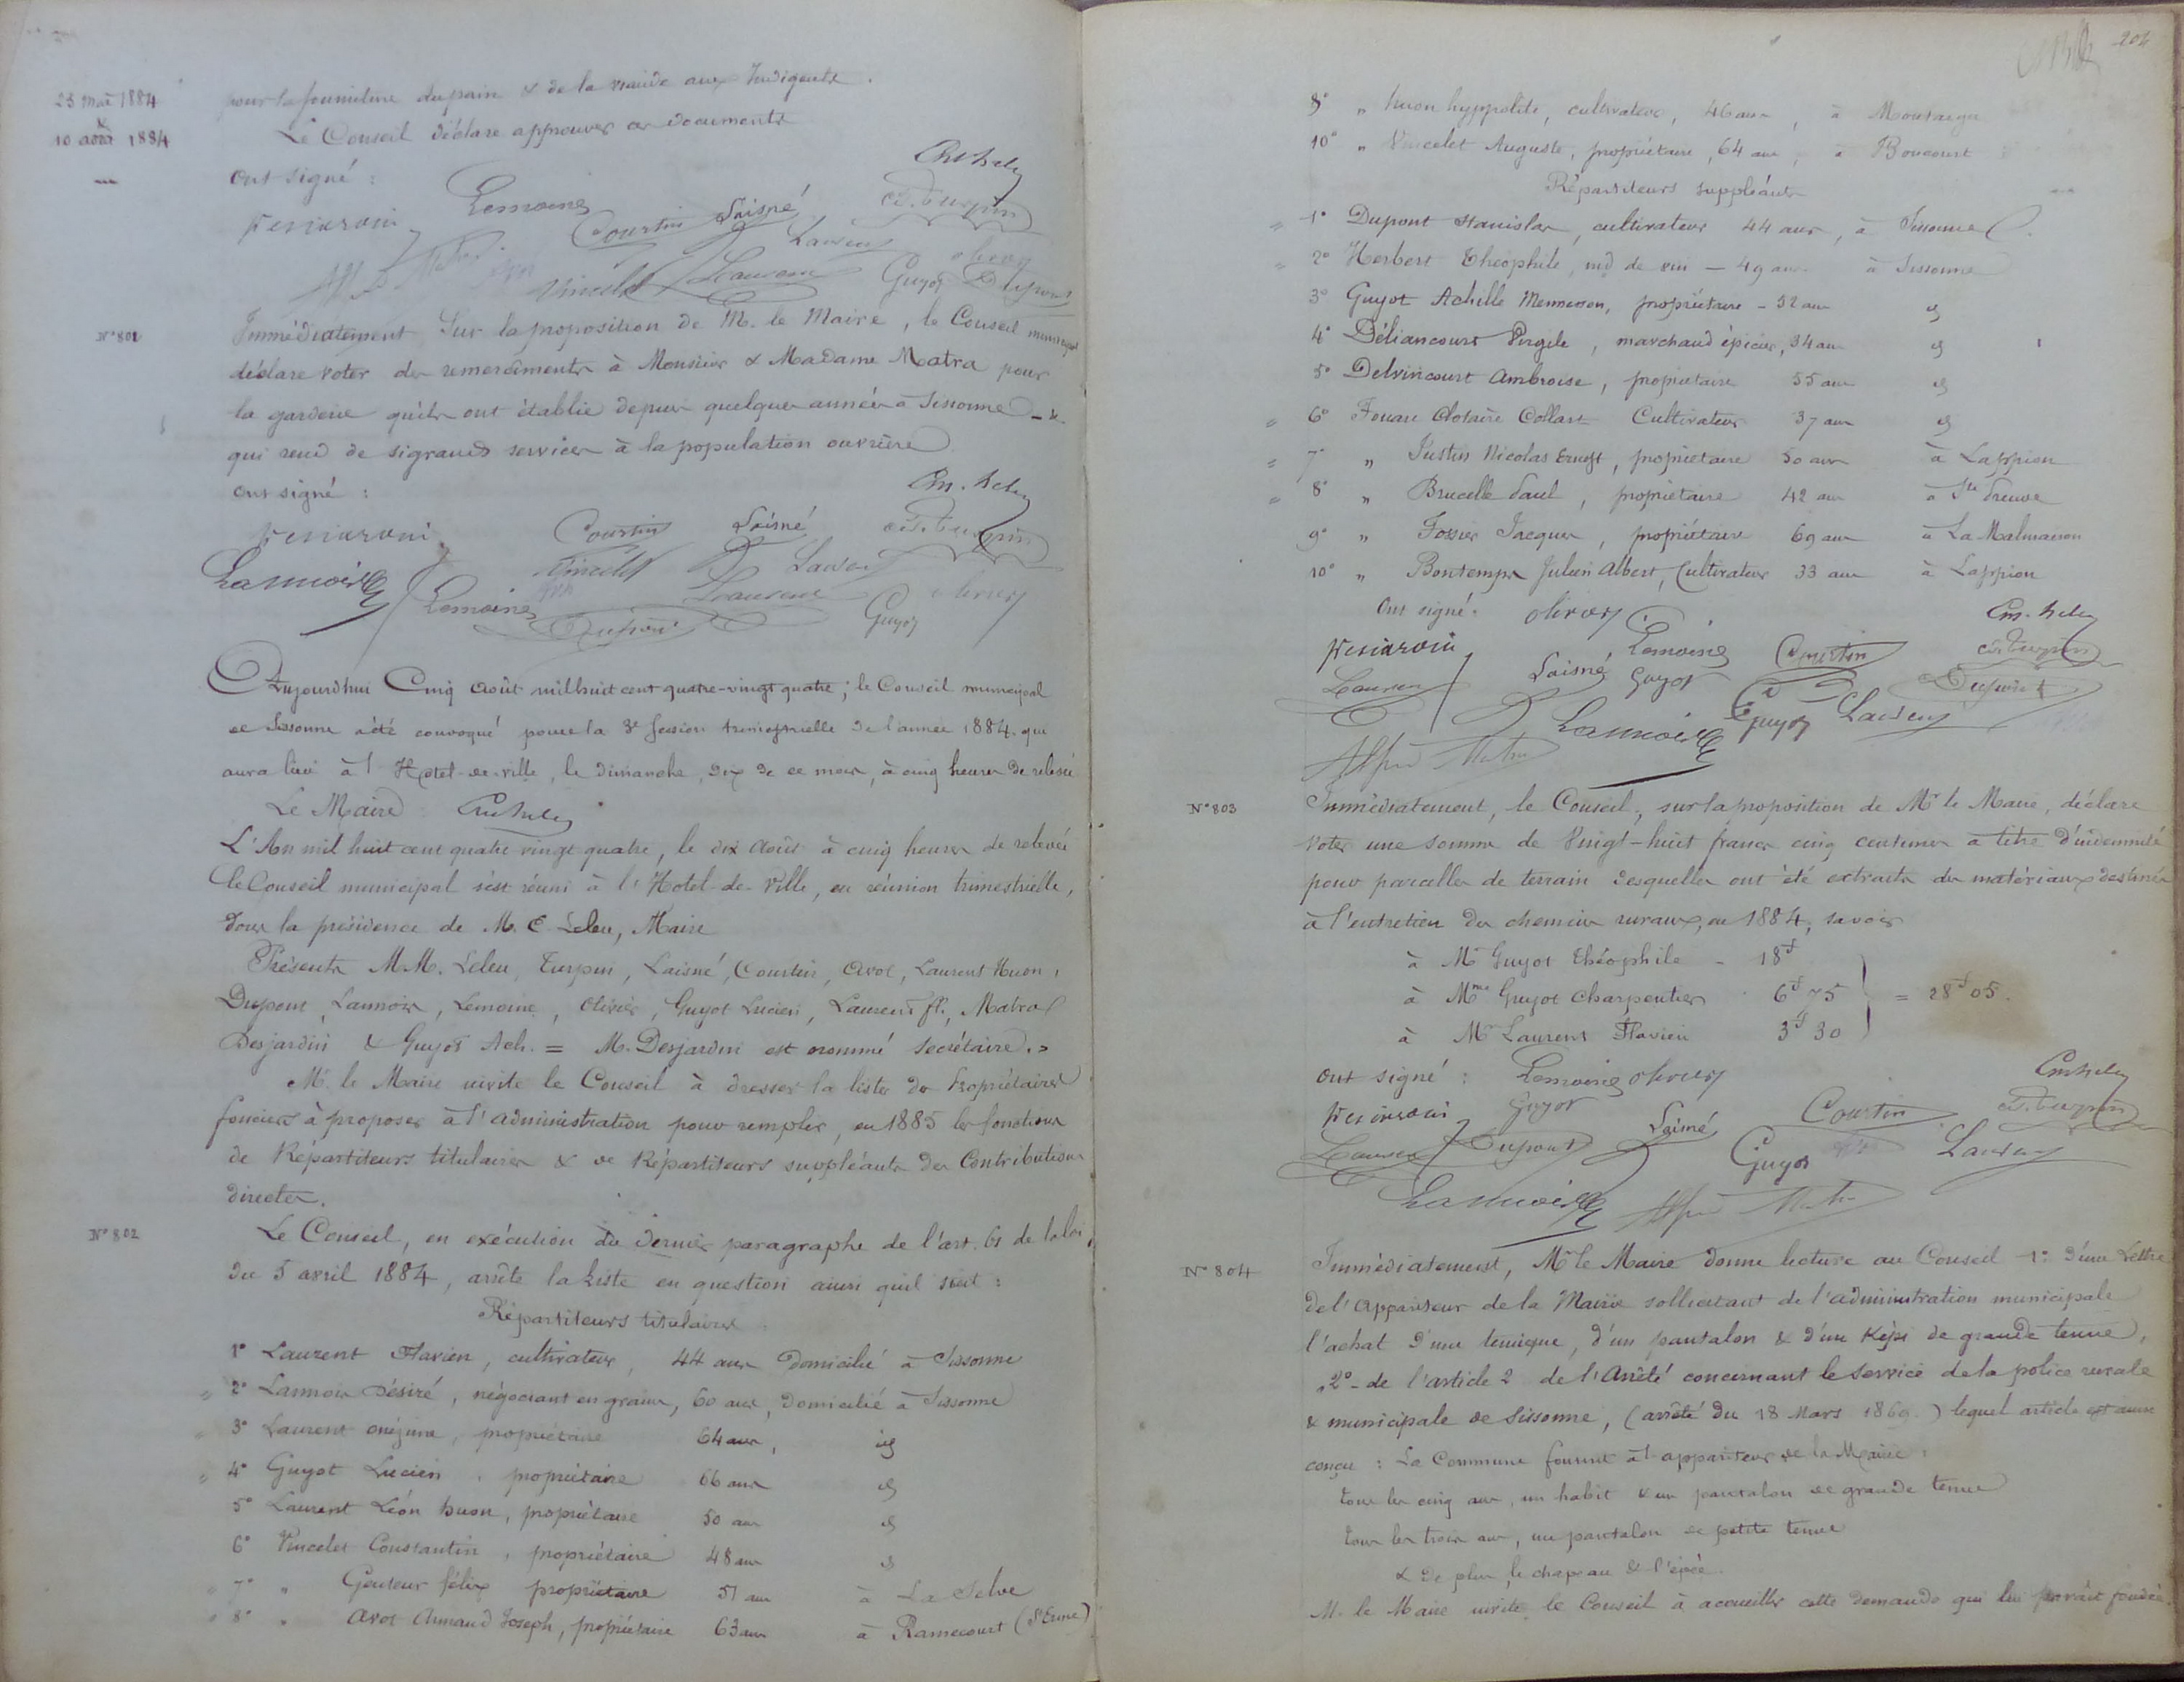 23 mai 1884
&
10 août 1884
pour la fourniture du pain & de la viande aux Indigents.
Le Conseil déclare approuver ces documents
Ont signé :
Em. Leleu
Lemoine
Courtin
Laisné
Turpin
Laurent
Vincelet
Laurent
Guyot
Olivier
Dupont
N° 801
Immédiatement, Sur la proposition de M. le Maire, le Conseil municipal
déclare voter des remerciments à Monsieur & Madame Matra pour
la garderie qu'ils ont établie depuis quelques années à Sissonne _ &
qui rend de si grands services à la population ouvrière
Ont signé :
Em. Leleu
Courtin
Laisné
Turpin
Lannois
Vincelet
Laurent
Lemoine
Laurent
Olivier
Dupont
Guyot
Aujourd'hui Cinq août mil huit cent quatre-vingt quatre ; le Conseil municipal
de Sissonne a été convoqué pour la 3e session trimestrielle de l'année 1884 qui
aura lieu à l'Hotel-de-ville, le dimanche, dix de ce mois, à cinq heures de relevée
Le Maire Em Leleu
L'An mil huit cent quatre vingt quatre, le dix Août à cinq heures de relevée
le Conseil municipal s'est réuni à l'Hotel-de-Ville, en réunion trimestrielle,
sous la présidence de M. E. Leleu, Maire
Présents M.M. Leleu, Turpin, Laisné, Courtin, Avot, Laurent Huon,
Dupont, Lannois, Lemoine, Olivier, Guyot Lucien, Laurent fln, Matra
Desjardin & Guyot Ach. = M. Desjardin est nommé Secrétaire. =
M. le Maire invite le Conseil à dresser la liste des Propriétaires
fonciers à proposer à l'administration pour remplir, en 1885 les fonctions
de Répartiteurs titulaires & de Répartiteurs suppléants des Contributions
directes.
N° 802
Le Conseil, en exécution du dernier paragraphe de l'art. 61 de la loi
du 5 avril 1884, arrête la liste en question ainsi qu'il suit :
Répartiteurs titulaires
1° Laurent Flavien, cultivateur, 44 ans domicilié à Sissonne
" 2° Lannois Désiré, négociant en grains, 60 ans, domicilié à Sissonne
" 3° Laurent onézime, propriétaire 64 ans, id
" 4° Guyot Lucien, propriétaire 66 ans id
5° Laurent Léon huon, propriétaire 50 ans id
6° Vincelet Constantin, propriétaire 48 ans id
" 7° " Félix propriétaire 51 ans à La Selve
" 8° " Avot Armand Joseph, propriétaire 63 ans à Ramecourt (St Erme)
204
9° " huon hyppolite, cultivateur, 46 ans, à Montaigu
10° " Vincelet Auguste, propriétaire, 64 ans, à Boncourt
Répartiteurs suppléants
" 1° Dupont Stanislas, cultivateur 44 ans, à Sissonne
" 2° Herbert Théophile, md de vin — 49 ans à Sissonne
3° Guyot Achille Mennesson, propriétaire - 52 ans id
4° Déliancourt Virgile, marchand épicier, 34 ans id
5° Delvincourt Ambroise, propriétaire 55 ans id
" 6° Fouan Clotaire Collart Cultivateur 37 ans id
" 7° " Justin Nicolas Ernest, propriétaire 50 ans à Lappion
" 8° " Brucelle Paul, propriétaire 42 ans à Ste Preuve
9° " Fossier Jacques, propriétaire 69 ans à La Malmaison
10° " Bontemps Julien Albert, Cultivateur 33 ans à Lappion
Ont signé : Olivier
Em. Leleu
Lemoine
Courtin
Turpin
Laurent
Laisné
Guyot
Dupont
Lannois
Guyot
Laurent
Alfred Matra
N° 803
Immédiatement, le Conseil, sur la proposition de Mr le Maire, déclare
voter une somme de Vingt-huit francs cinq centimes à titre d'indemnité
pour parcelles de terrain desquelles ont été extraits des matériaux destinés
à l'entretien des chemins ruraux, en 1884, savoir
à Mr Guyot Théophile - 18f
à Mme Guyot Charpentier 6f 75 = 28f 05.
à Mr Laurent Flavien 3f 30
Ont signé : Lemoine Olivier
Em Leleu
Guyot
Laisné
Courtin
Turpin
Laurent
Dupont
Guyot
Laurent
Lannois
Alfred Matra
N° 804
Immédiatement, Mr le Maire donne lecture au Conseil 1° d'une Lettre
de l'Appariteur de la Mairie sollicitant de l'administration municipale
l'achat d'une tunique, d'un pantalon & d'un Képi de grande tenue,
2° - de l'article 2 de l'Arrêté concernant le service de la police rurale
& municipale de Sissonne, (arrêté du 18 Mars 1869.) lequel article est ainsi
conçu : La Commune fournit à l'appariteur de la Mairie :
tous les cinq ans, un habit & un pantalon de grande tenue
tous les trois ans, un pantalon de petite tenue
& de plus, le chapeau & l'épée.
M. le Maire invite le Conseil à accueillir cette demande qui lui paraît fondée.